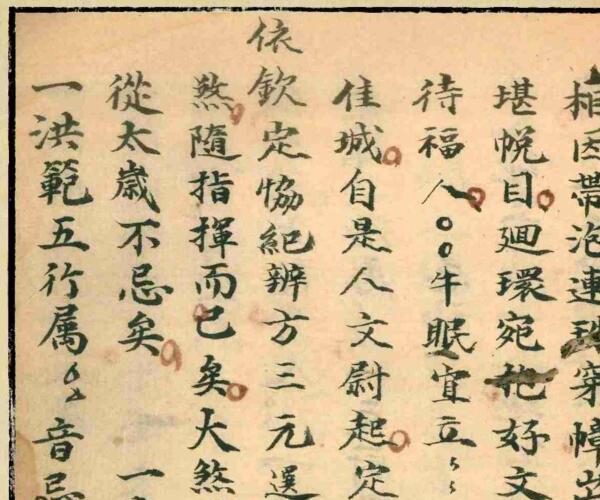 相因帶泡連珠穿幛
堪悅目廻環宛他好文
待福人〇〇牛眠宜立
佳城自是人文尉起定
依欽定恊紀辨方三元選
煞隨指揮而已矣大煞
從太歲不忌矣 一
一洪範五行属 音忌